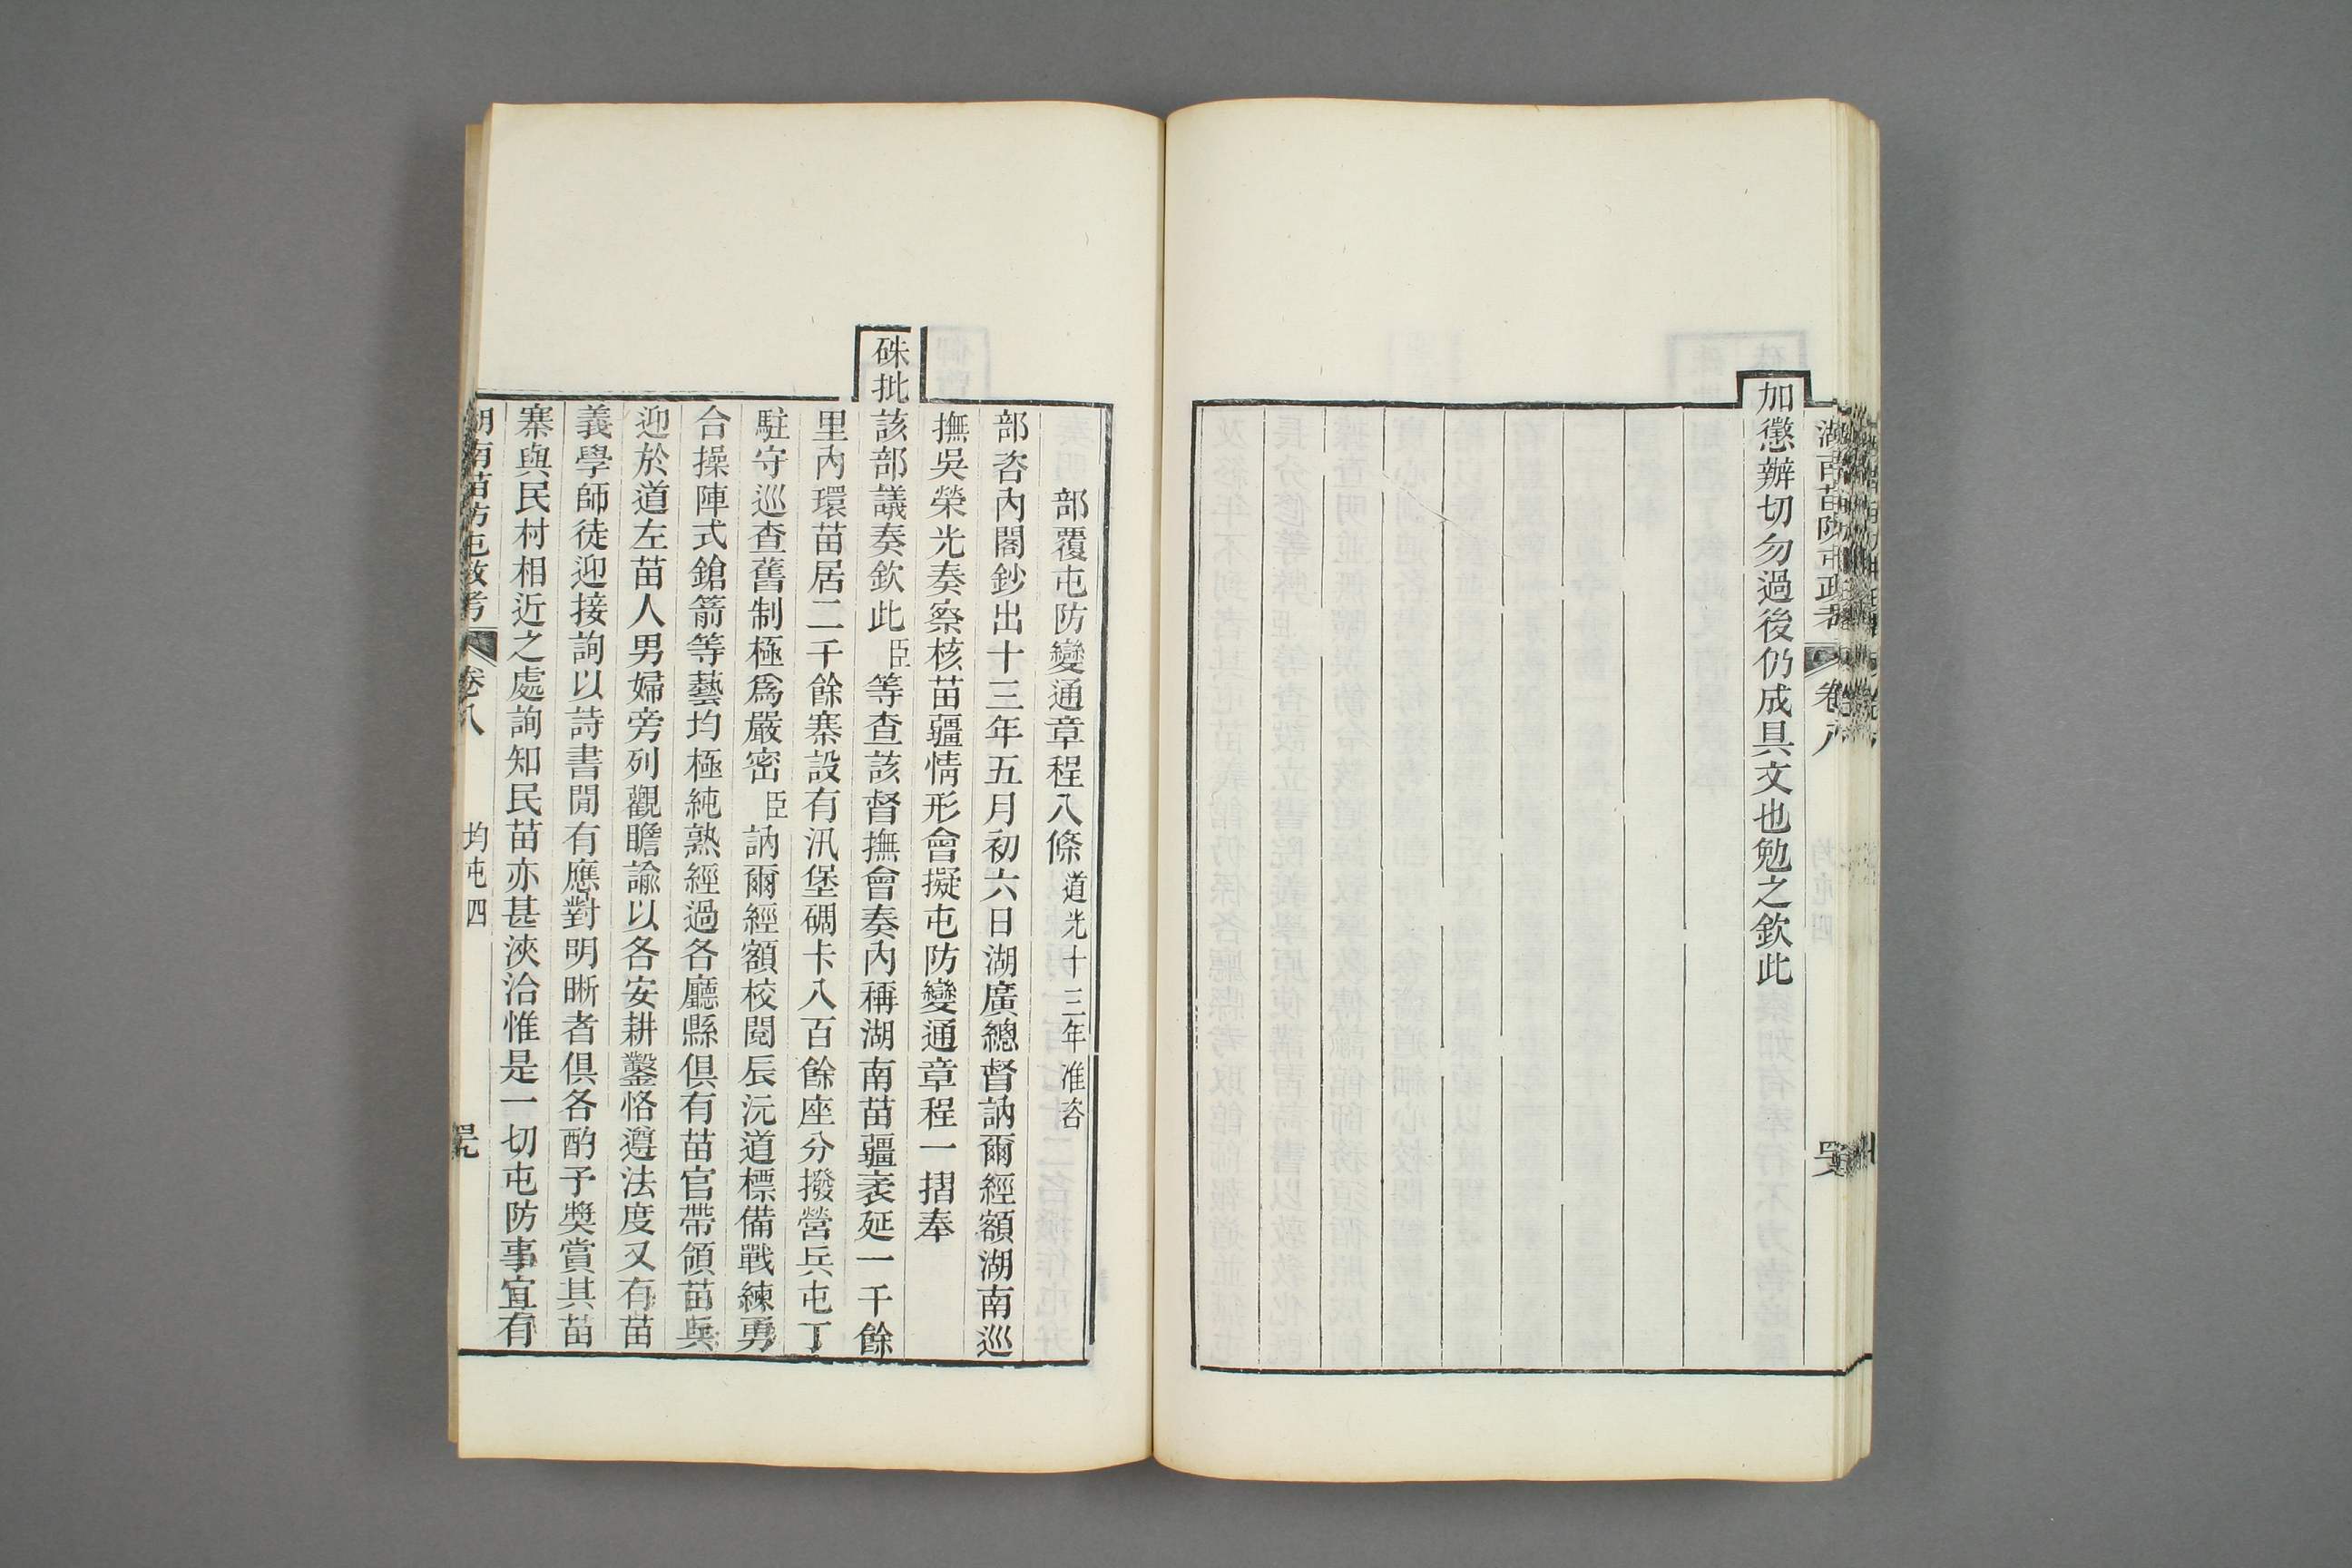 湖南苗防屯政考 卷八
加懲辦切勿過後仍成具文也勉之欽此
部覆屯防變通章程八條 道光十三年准咨
部咨內閣鈔出十三年五月初六日湖廣總督訥爾經額湖南巡
撫吳榮光奏察核苗疆情形會擬屯防變通章程一摺奉
硃批該部議奏欽此臣等查該督撫會奏內稱湖南苗疆袤延一千餘
里內環苗居二千餘寨設有汛堡碉卡八百餘座分撥營兵屯丁
駐守巡查舊制極爲嚴密臣訥爾經額校閱辰沅道標備戰練勇
合操陣式鎗箭等藝均極純熟經過各廳縣俱有苗官帶領苗兵
迎於道左苗人男婦旁列觀瞻諭以各安耕鑿恪遵法度又有苗
義學師徒迎接詢以詩書閒有應對明晰者俱各酌予獎賞其苗
寨與民村相近之處詢知民苗亦甚浹洽惟是一切屯防事宜有
湖南苗防屯政考 卷八 均屯四